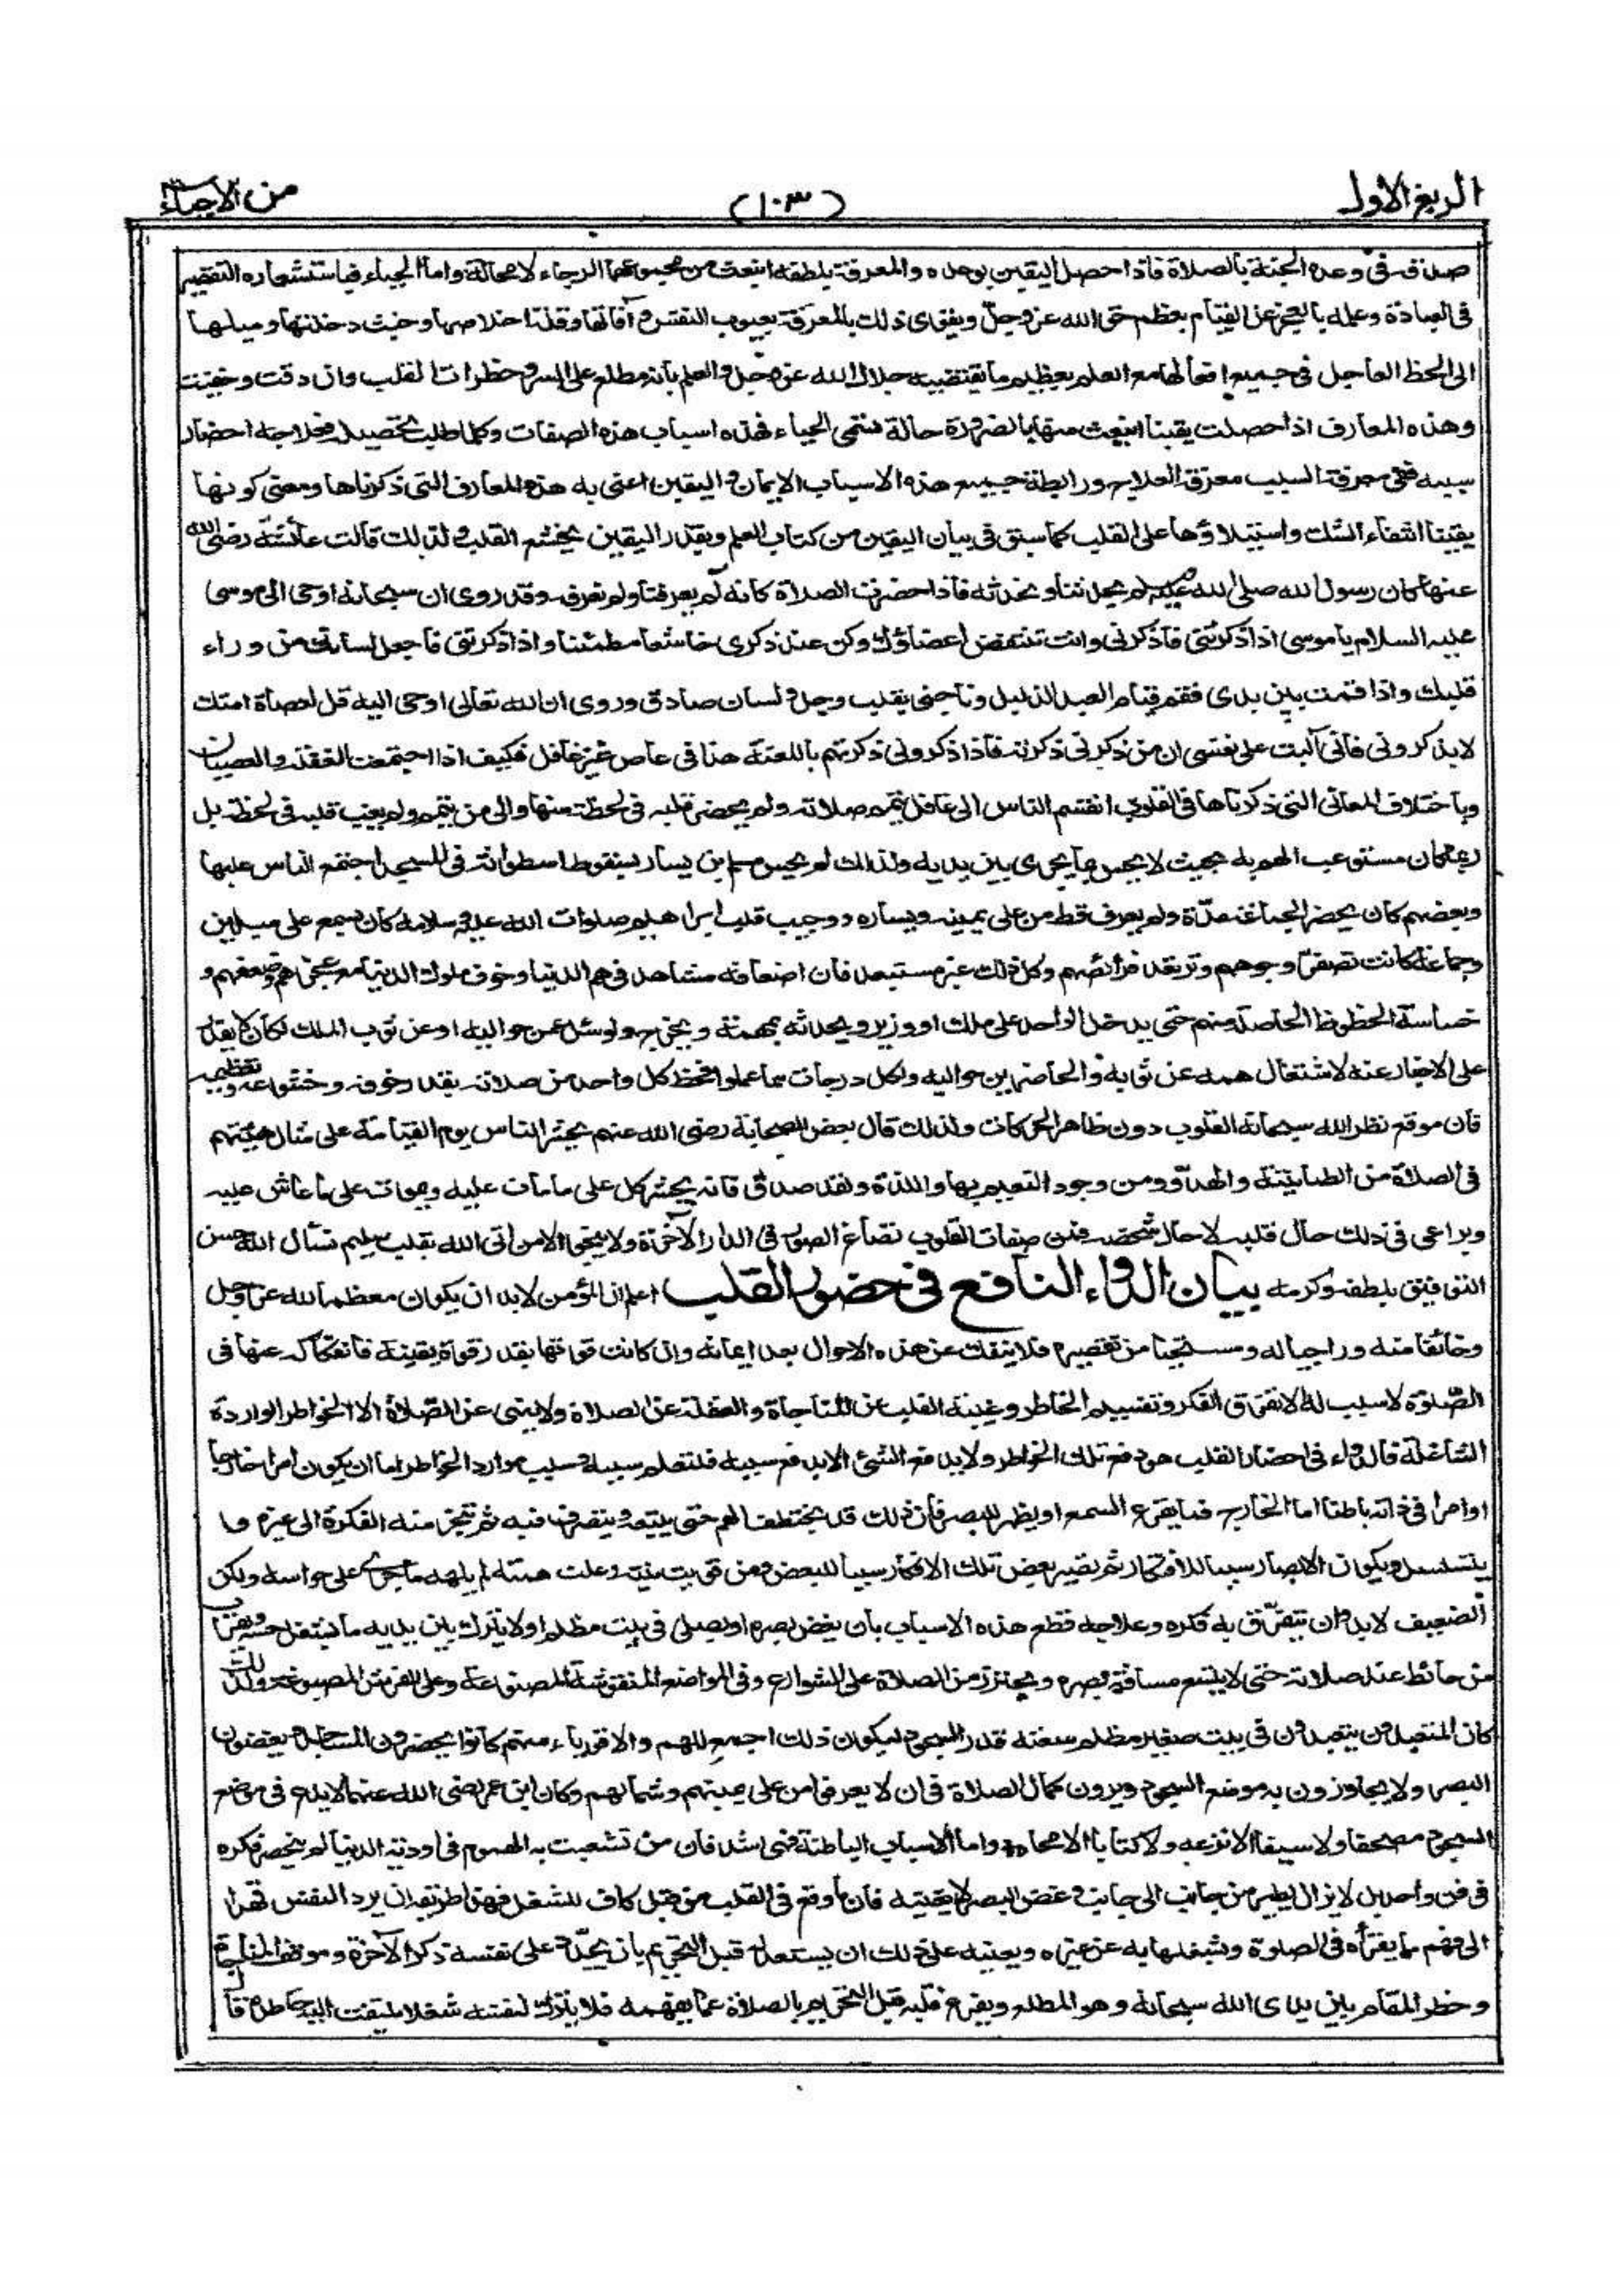 الربع الاول
(١٠٣)
من الاحياء
صدقه فى وعده الجنة بالصلاة فاذا حصل اليقين بوعده والمعرفة بلطفه انبعث من مجموعهما الرجاء لا محالة واما الحياء فباستشعاره التقصير
فى العبادة وعلمه بالعجز عن القيام بعظم حق الله عز وجل ويقوى ذلك بالمعرفة بعيوب النفس وآفاتها وقلة اخلاصها وخبث دخلتها وميلها
الى الحظ العاجل فى جميع افعالها مع العلم بعظيم ما يقتضيه جلال الله عز وجل والعلم بانه مطلع على السر وخطرات القلب وان دقت وخفيت
وهذه المعارف اذا حصلت يقينا انبعث منها بالضرورة حالة تسمى الحياء فهذه اسباب هذه الصفات وكلما طلب تحصيله فعلاجه احضار
سببه ففى معرفة السبب معرفة العلاج ورابطة جميع هذه الاسباب الايمان واليقين اعنى به هذه المعارف التى ذكرناها ومعنى كونها
يقينا انتفاء الشك واستيلاؤها على القلب كما سبق فى بيان اليقين من كتاب العلم وبقدر اليقين يخشع القلب ولذلك قالت عائشة رضى الله
عنها كان رسول الله صلى الله عليه وسلم يحدثنا ونحدثه فاذا حضرت الصلاة كانه لم يعرفنا ولم نعرفه وقد روى ان سبحانه اوحى الى موسى
عليه السلام يا موسى اذا ذكرتنى فاذكرنى وانت تنتفض اعضاؤك وكن عند ذكرى خاشعا مطمئنا واذا ذكرتنى فاجعل لسانك من وراء
قلبك واذا قمت بين يدى فقم قيام العبد الذليل وناجنى بقلب وجل ولسان صادق وروى ان الله تعالى اوحى اليه قل لعصاة امتك
لا يذكرونى فانى آليت على نفسى ان من ذكرنى ذكرته فاذا ذكرونى ذكرتهم باللعنة هذا فى عاص غير غافل فكيف اذا اجتمعت الغفلة والعصيان
وباختلاف المعانى التى ذكرناها فى القلوب انقسم الناس الى غافل يتمم صلاته ولم يحضر قلبه فى لحظة منها والى من يتمم ولم يغب قلبه فى لحظة بل
ربما كان مستوعب الهم به بحيث لا يحس بما يجرى بين يديه ولذلك لم يحس مسلم بن يسار بسقوط اسطوانة فى المسجد اجتمع الناس عليها
وبعضهم كان يحضر الجماعة مدة ولم يعرف قط من على يمينه ويساره ووجيب قلب ابراهيم صلوات الله عليه وسلامه كان يسمع على ميلين
وجماعة كانت تصفر وجوههم وترتعد فرائصهم وكل ذلك غير مستبعد فان اضعافه مشاهد فى هم الدنيا وخوف ملوك الدنيا مع عجزهم وضعفهم و
خساسة الحظوظ الحاصلة منهم حتى يدخل الواحد على ملك او وزير ويحدثه بمهمته ويخرج ولو سئل عمن حواليه او عن ثوب الملك لكان لا يقدر
على الاخبار عنه لاشتغال همه عن ثوبه والحاضرين حواليه ولكل درجات مما عملوا فحظ كل واحد من صلاته بقدر خوفه وخشوعه وتعظيمه
فان موقع نظر الله سبحانه القلوب دون ظاهر الحركات ولذلك قال بعض الصحابة رضى الله عنهم يحشر الناس يوم القيامة على مثال هيئتهم
فى الصلاة من الطمانينة والهدو ومن وجود النعيم بها واللذة ولقد صدق فانه يحشر كل على ما مات عليه ويموت على ما عاش عليه
ويراعى فى ذلك حال قلبه لا حال شخصه فمن صفات القلوب تصاغ الصور فى الدار الآخرة ولا ينجو الا من اتى الله بقلب سليم نسأل الله حسن
التوفيق بلطفه وكرمه بيان الدواء النافع فى حضور القلب اعلم ان المؤمن لابد ان يكون معظما لله عز وجل
وخائفا منه وراجيا له ومستحيا من تقصيره فلا ينفك عن هذه الاحوال بعد ايمانه وان كانت قوتها بقدر قوة يقينه فانفكاكه عنها فى
الصلوة لا سبب له الا تفرق الفكر وتقسيم الخاطر وغيبة القلب عن المناجاة والغفلة عن الصلاة ولا يلهى عن الصلاة الا الخواطر الواردة
الشاغلة فالدواء فى احضار القلب هو دفع تلك الخواطر ولا يدفع الشئ الا بدفع سببه فلتعلم سببه وسبب موارد الخواطر اما ان يكون امرا خارجا
او امرا فى ذاته باطنا اما الخارج فما يقرع السمع او يظهر للبصر فان ذلك قد يختطف الهم حتى يتبعه ويتصرف فيه ثم تنجر منه الفكرة الى غيره و
يتسلسل ويكون الابصار سببا للافتكار ثم تصير بعض تلك الافكار سببا للبعض ومن قويت نيته وعلت همته لم يلهه ما جرى على حواسه ولكن
الضعيف لابد وان يتفرق به فكره وعلاجه قطع هذه الاسباب بان يغض بصره او يصلى فى بيت مظلم او لا يترك بين يديه ما يشغل حسه ويقرب
من حائط عند صلاته حتى لا يتسع مسافة بصره ويحترز من الصلاة على الشوارع وفى المواضع المنقوشة المصنوعة وعلى الفرش المصبوغة ولذلك
كان المتعبدون يتعبدون فى بيت صغير مظلم سعته قدر السجود ليكون ذلك اجمع للهم والاقوياء منهم كانوا يحضرون المساجد ويغضون
البصر ولا يجاوزون به موضع السجود ويرون كمال الصلاة فى ان لا يعرفوا من على يمينهم وشمالهم وكان ابن عمر رضى الله عنهما لا يدع فى موضع
السجود مصحفا ولا سيفا الا نزعه ولا كتابا الا محاه واما الاسباب الباطنة فهى اشد فان من تشعبت به الهموم فى اودية الدنيا لم ينحصر فكره
فى فن واحد بل لا يزال يطير من جانب الى جانب وغض البصر لا يغنيه فان ما وقع فى القلب من قبل كاف للشغل فهذا طريقه ان يرد النفس قهرا
الى فهم ما يقرأه فى الصلوة ويشغلها به عن غيره ويعينه على ذلك ان يستعد له قبل التحريم بان يجدد على نفسه ذكر الآخرة وموقف المناجاة
وخطر المقام بين يدى الله سبحانه وهو المطلع ويفرغ قلبه قبل التحريم بالصلاة عما يهمه فلا يترك لنفسه شغلا يلتفت اليه خاطره قا